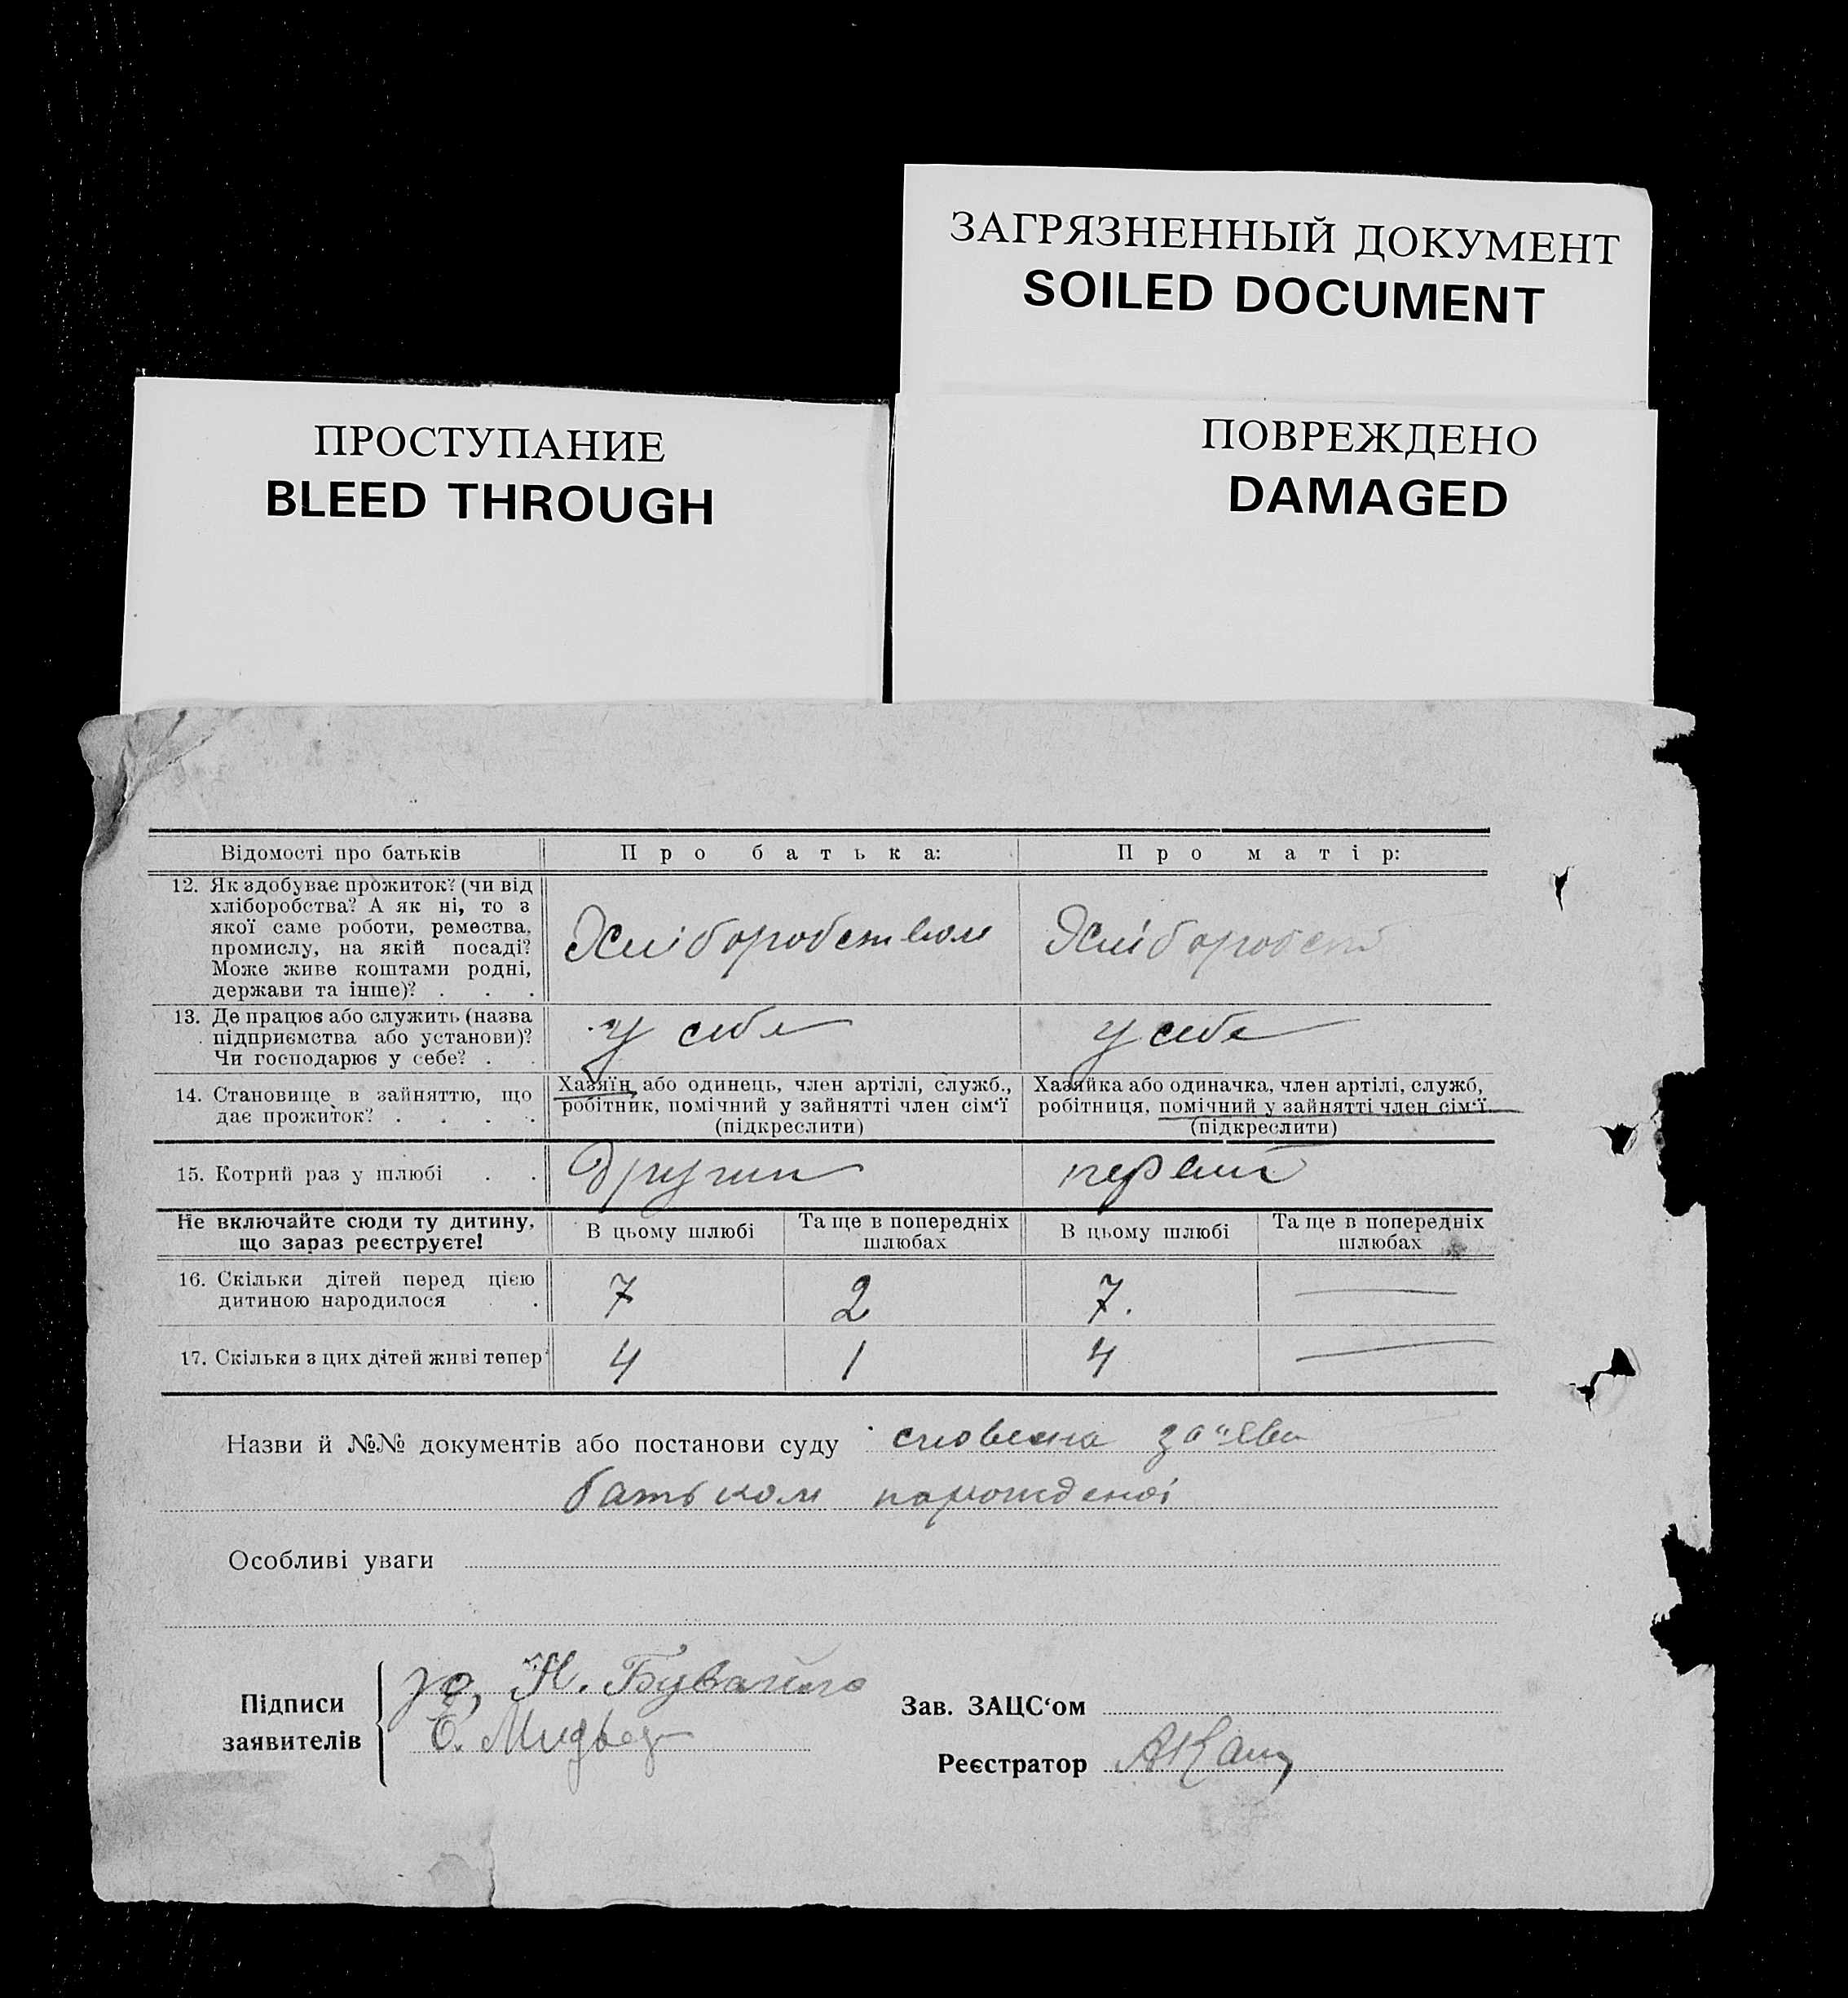 ЗАГРЯЗНЕННЫЙ ДОКУМЕНТ
SOILED DOCUMENT
ПРОСТУПАНИЕ
BLEED THROUGH
ПОВРЕЖДЕНО
DAMAGED
Відомості про батьків Про батька: Про матір:
12. Як здобуває прожиток? (чи від
хліборобства? А як ні, то з
якої саме роботи, ремества,
промислу, на якій посаді?
Може живе коштами родні,
держави та інше)? . . .
Хліборобством Хліборобств
13. Де працює або служить (назва
підприємства або установи)?
Чи господарює у себе? . .
у себе у себе
14. Становище в зайняттю, що
дає прожиток? . . . .
Хазяїн, або одинець, член артілі, служб.,
робітник, помічний у зайнятті член сім'ї
(підкреслити)
Хазяйка або одиначка, член артілі, служб,
робітниця, помічний у зайнятті член сім'ї.
(підкреслити)
15. Котрий раз у шлюбі . . Другий первий
Не включайте сюди ту дитину,
що зараз реєструєте!
В цьому шлюбі Та ще в попередніх
шлюбах
В цьому шлюбі Та ще в попередніх
шлюбах
16. Скільки дітей перед цією
дитиною народилося . .
7 2 7. —
17. Скільки з цих дітей живі тепер? 4 1 4 —
Назви й №№ документів або постанови суду словесна за"ява
батьком
Особливі уваги
Підписи
заявителів
Н.
Зав. ЗАЦС'ом
Реєстратор